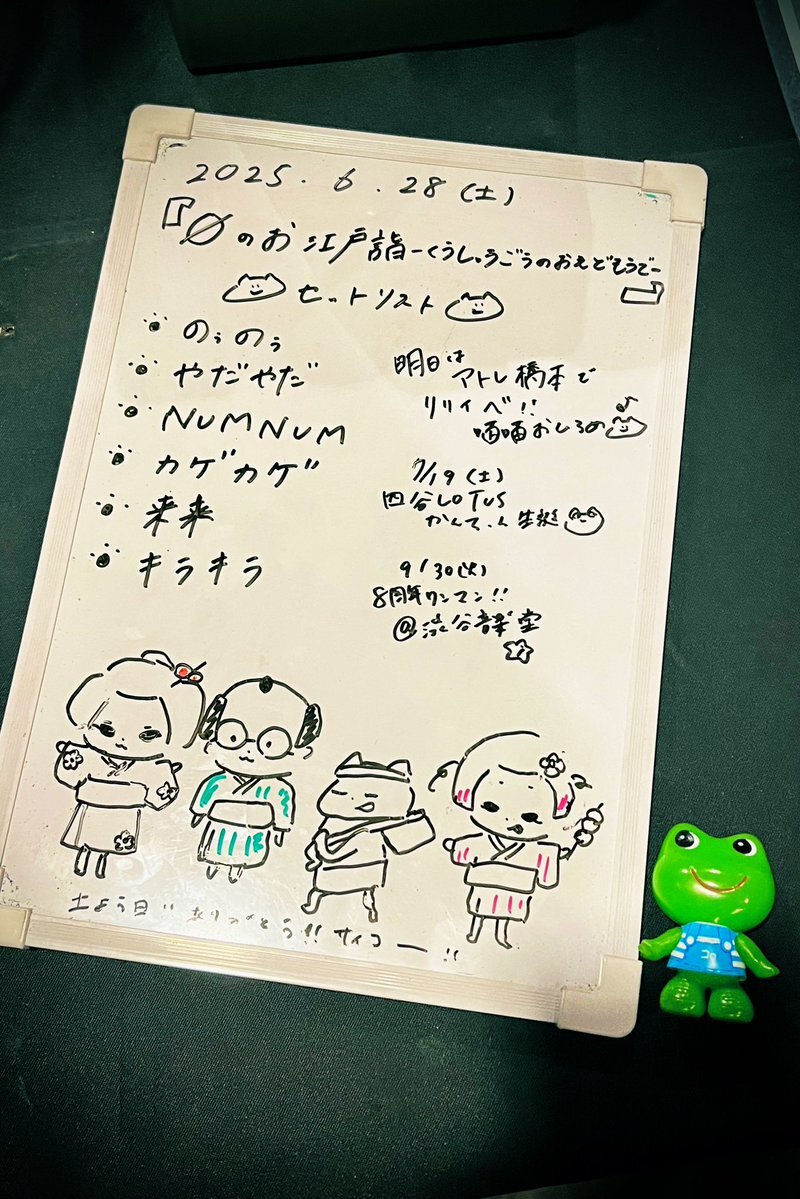 2025.6.28(土)
『∅のお江戸詣-くうしゅうごうのおえどもうで-』
セットリスト
のぅのぅ
やだやだ
NUMNUM
カゲカゲ
来来
キラキラ
明日は
アトレ橋本で
リリイベ!!
喃喃おしろめ
7/19(土)
四谷LOTUS
かんてぃん生誕
9/30(火)
8周年ワンマン!!
@渋谷音楽堂
土よう日!! ありがとう!! サイコー!!